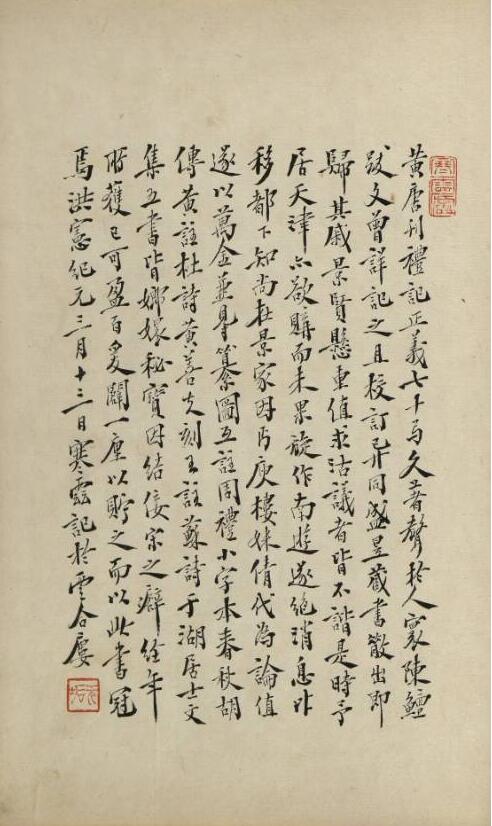 黃唐刊禮記正義七十卷久著聲於人寰陳鱣
跋文曾詳記之且校訂异同盛昱藏書散出即
歸其戚景賢懸重值求沽議者皆不諧是時予
居天津亦欲購而未果旋作南遊遂絕消息昨
移都下知尚在景家因丐庾樓妹倩代為論值
遂以萬金並㝵纂圖互註周禮小字本春秋胡
傳黃註杜詩黃善夫刻王註蘇詩于湖居士文
集五書皆嫏嬛秘寶因結佞宋之癖經年
所獲已可盈百爰闢一廛以貯之而以此書冠
焉洪憲紀元三月十三日寒雲記於雲合廔